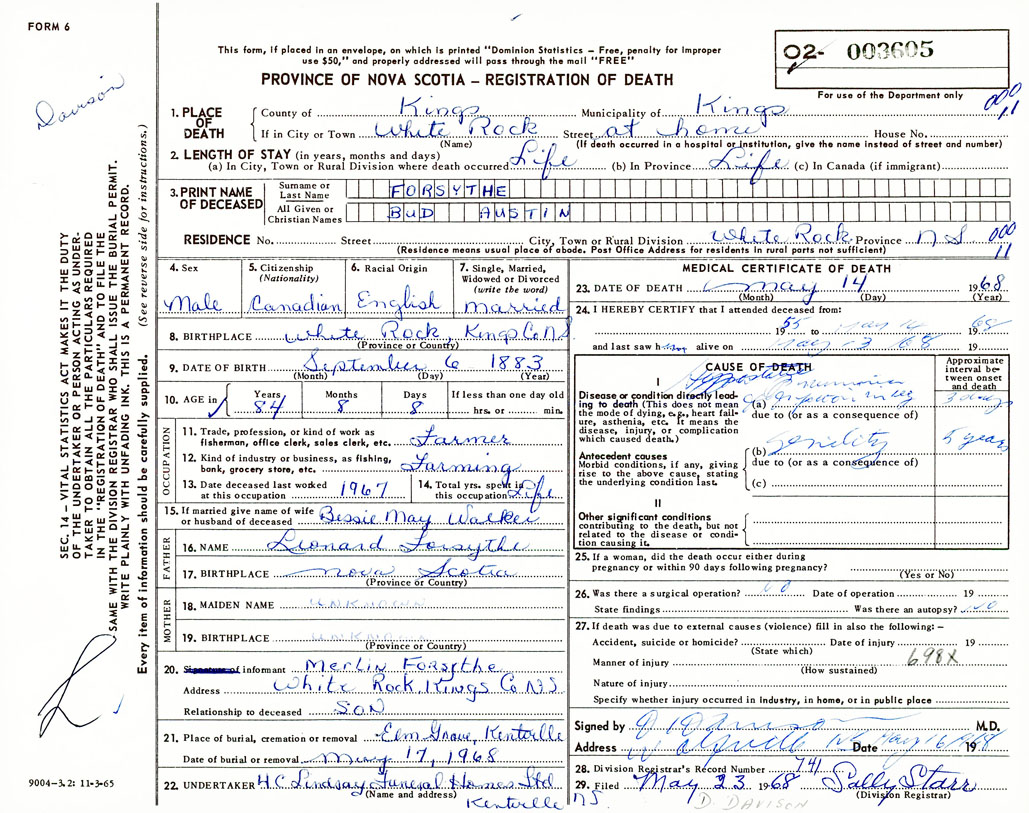 FORM 6
Davison
This form, if placed in an envelope, on which is printed "Dominion Statistics – Free, penalty for improper
use $50," and properly addressed will pass through the mail "FREE"
PROVINCE OF NOVA SCOTIA – REGISTRATION OF DEATH
02- 003605
For use of the Department only
SEC. 14 – VITAL STATISTICS ACT MAKES IT THE DUTY
OF THE UNDERTAKER OR PERSON ACTING AS UNDER-
TAKER TO OBTAIN ALL THE PARTICULARS REQUIRED
IN THE "REGISTRATION OF DEATH" AND TO FILE THE
SAME WITH THE DIVISION REGISTRAR WHO SHALL ISSUE THE BURIAL PERMIT.
WRITE PLAINLY WITH UNFADING INK. THIS IS A PERMANENT RECORD.
Every item of information should be carefully supplied. (See reverse side for instructions.)
1. PLACE OF DEATH County of Kings Municipality of Kings 000 11
If in City or Town White Rock Street at home House No.
(Name) (If death occurred in a hospital or institution, give the name instead of street and number)
2. LENGTH OF STAY (in years, months and days)
(a) In City, Town or Rural Division where death occurred Life (b) In Province Life (c) In Canada (if immigrant)
3. PRINT NAME OF DECEASED Surname or Last Name FORSYTHE
All Given or Christian Names BUD AUSTIN
RESIDENCE No. Street City, Town or Rural Division White Rock Province N S 000 11
(Residence means usual place of abode. Post Office Address for residents in rural parts not sufficient)
4. Sex Male
5. Citizenship (Nationality) Canadian
6. Racial Origin English
7. Single, Married, Widowed or Divorced (write the word) married
8. BIRTHPLACE White Rock, Kings Co N S
(Province or Country)
9. DATE OF BIRTH September 6 1883
(Month) (Day) (Year)
10. AGE in Years 84 Months 8 Days 8 If less than one day old hrs. or min.
OCCUPATION
11. Trade, profession, or kind of work as fisherman, office clerk, sales clerk, etc. Farmer
12. Kind of industry or business, as fishing, bank, grocery store, etc. Farming
13. Date deceased last worked at this occupation 1967
14. Total yrs. spent in this occupation Life
15. If married give name of wife or husband of deceased Bessie May Walker
FATHER
16. NAME Leonard Forsythe
17. BIRTHPLACE Nova Scotia
(Province or Country)
MOTHER
18. MAIDEN NAME UNKNOWN
19. BIRTHPLACE UNKNOWN
(Province or Country)
20. Signature of informant Merlin Forsythe
Address White Rock, Kings Co N S
Relationship to deceased SON
21. Place of burial, cremation or removal Elm Grove, Kentville
Date of burial or removal May 17, 1968
22. UNDERTAKER H C Lindsay Funeral Homes Ltd
(Name and address) Kentville NS.
9004-3.2: 11-3-65
MEDICAL CERTIFICATE OF DEATH
23. DATE OF DEATH May 14 1968
(Month) (Day) (Year)
24. I HEREBY CERTIFY that I attended deceased from:
1955 to May 14 1968
and last saw him alive on May 13 68 19
CAUSE OF DEATH
Approximate interval between onset and death
I
Disease or condition directly leading to death (This does not mean the mode of dying, e.g., heart failure, asthenia, etc. It means the disease, injury, or complication which caused death.)
(a) Hypostatic Pneumonia 3 days
due to (or as a consequence of)
Antecedent causes
Morbid conditions, if any, giving rise to the above cause, stating the underlying condition last.
(b) Senility 5 years
due to (or as a consequence of)
(c)
II
Other significant conditions contributing to the death, but not related to the disease or condition causing it.
25. If a woman, did the death occur either during pregnancy or within 90 days following pregnancy?
(Yes or No)
26. Was there a surgical operation? no Date of operation 19
State findings Was there an autopsy? no
27. If death was due to external causes (violence) fill in also the following:–
Accident, suicide or homicide? Date of injury 19
(State which)
Manner of injury 698X
(How sustained)
Nature of injury
Specify whether injury occurred in industry, in home, or in public place
Signed by Davison M.D.
Address Wolfville Date May 16 1968
28. Division Registrar's Record Number 741
29. Filed May 23 1968 Sally Starr
(Division Registrar)
D. DAVISON